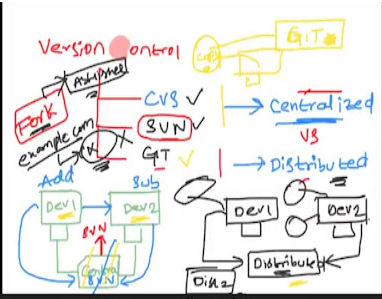 Version Control
GIT
Fork
example.com
CVS
SVN
GIT
Centralized
VS
Distributed
Add
Sub
Dev1
Dev2
SVN
Central
SVN
Dev1
Dev2
Distributed
Disk2